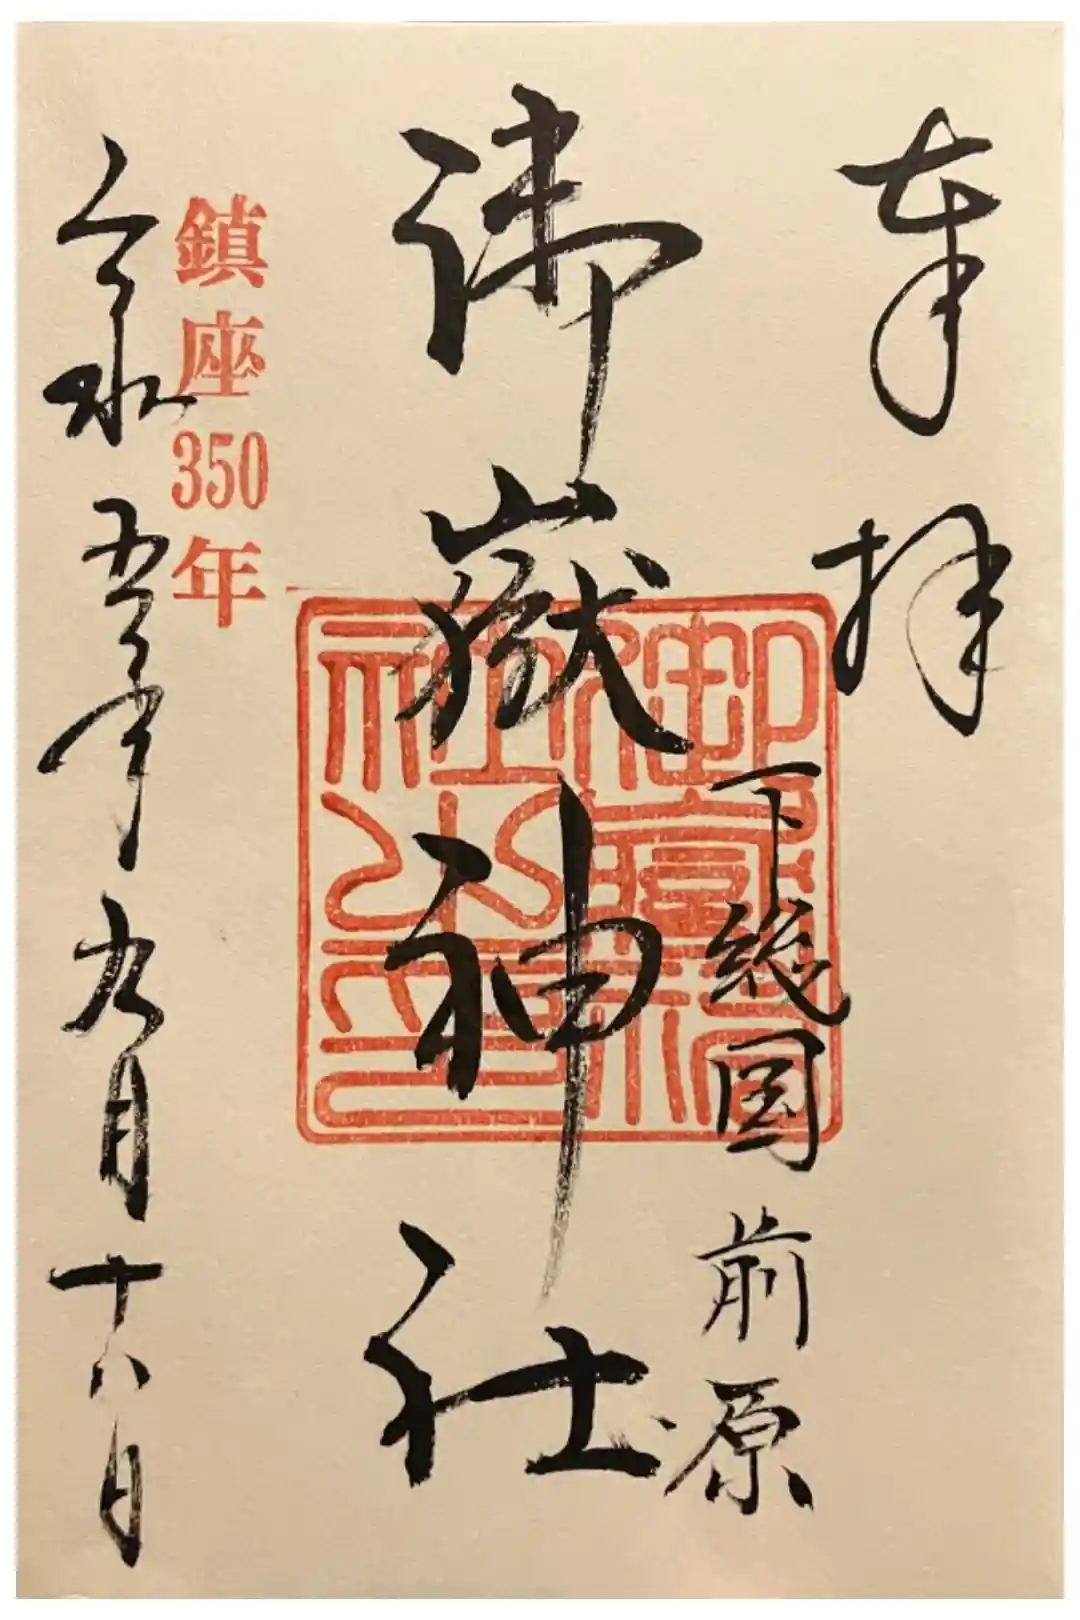 奉拝
下総国 前原
御嶽神社
御嶽神
社之印
鎮座350年
令和五年九月十八日